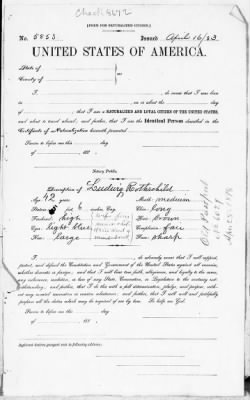 Check 4672
[FORM FOR NATURALIZED CITIZEN.]
No. 5853 Issued April 16/83
UNITED STATES OF AMERICA.
State of
County of ss:
I, do swear that I was born
in on or about the day
of ; that I am a NATURALIZED AND LOYAL CITIZEN OF THE UNITED STATES,
and about to travel abroad; and further, that I am the Identical Person described in the
Certificate of Naturalization herewith presented.
Sworn to before me this day
of 188
Notary Public.
Description of Ludwig Rothschild
Age: 42 years Mouth: medium
Stature: 5 feet 6 inches Eng. Chin: long
Forehead: high Hair: brown
Eyes: light blue Complexion: fair
Nose: large Face: sharp
Old Passport
I, do solemnly swear that I will support,
protect, and defend the Constitution and Government of the United States against all enemies,
whether domestic or foreign; and that I will bear true faith, allegiance, and loyalty to the same,
any ordinance, resolution, or law of any State, Convention, or Legislature to the contrary not-
withstanding; and further, that I do this with a full determination, pledge, and purpose, without
any mental reservation or evasion whatsoever; and further, that I will well and faithfully
perform all the duties which may be required of me by law. So help me God.
Sworn to before me this day
of 188
Applicant desires passport sent to following address: